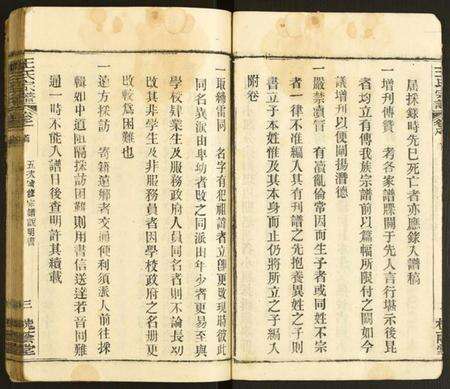 屆採錄時先已死亡者亦應錄入譜稿
一增刊傳贊 考各家譜牒關于先人言行堪示後昆
者均立有傳我族宗譜前以篇幅所限付之闕如今
議增刊以便闡揚潛德
一嚴禁瀆宗 有瀆亂倫常因而生子者或同姓不宗
者一律不准編入其有刊譜之先抱養異姓之子則
書立子本姓惟及其本身而止仍將所立之子編入
附卷
一取締雷同 名字有犯祖諱者立即更改現時彼此
同名異派由卑幼者改之同派由年少者更易至與
學校肄業生及服務政府人員同名者則不論長幼
改其非學生及非服務員者因學校政府之名冊更
改較為困難也
一遠方採訪 寄籍遠鄉者交通便利須派人前往採
輯如中道阻隔採訪困難則用書信送達若音問難
通一時不能入譜日後查明許其續載
王氏宗譜
卷二
五次續修宗譜說明書
三
槐蔭堂